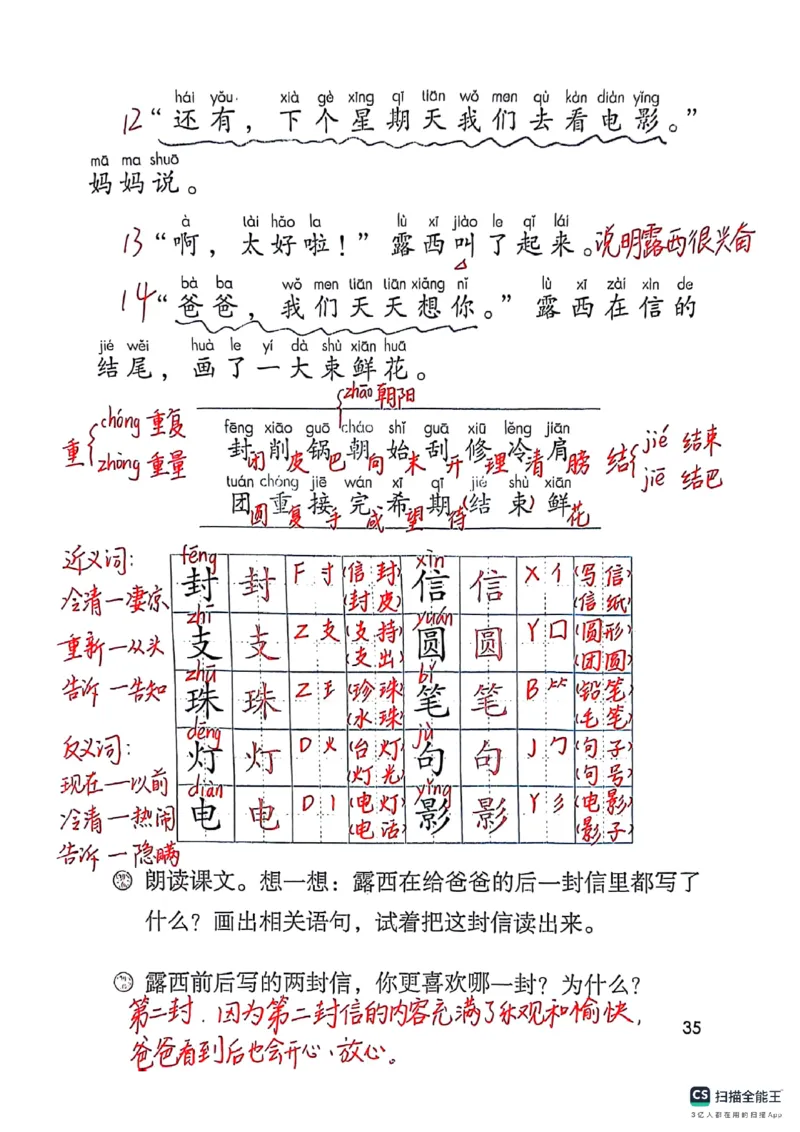 hái yǒu xià gè xīng qī tiān wǒ men qù kàn diàn yǐng
12 “还有，下个星期天我们去看电影。”
mā ma shuō
妈妈说。
à tài hǎo la lù xī jiào le qǐ lái
13 “啊，太好啦！”露西叫了起来。说明露西很兴奋
bà ba wǒ men tiān tiān xiǎng nǐ lù xī zài xìn de
14 “爸爸，我们天天想你。”露西在信的
jié wěi huà le yí dà shù xiān huā
结尾，画了一大束鲜花。
zhāo 朝阳
chóng 重复
重
zhòng 重量
fēng xiāo guō cháo shǐ guā xiū lěng jiān
封 削 锅 朝 始 刮 修 冷 肩
闭 皮 巴 向 末 开 理 清 膀
tuán chóng jiē wán xī qī jié shù xiān
团 重 接 完 希 期（结 束）鲜
圆 复 手 成 望 待 花
结
jié 结束
jiē 结巴
近义词：
冷清—凄凉
重新—从头
告诉—告知
反义词：
现在—以前
冷清—热闹
告诉—隐瞒
fēng xìn
封 封 F 寸（信封）（封皮） 信 信 X 亻（写信）（信纸）
zhī yuán
支 支 Z 支（支持）（支出） 圆 圆 Y 囗（圆形）（团圆）
zhū bǐ
珠 珠 Z 王（珍珠）（水珠） 笔 笔 B ⺮（铅笔）（毛笔）
dēng jù
灯 灯 D 火（台灯）（灯光） 句 句 J 勹（句子）（句号）
diàn yǐng
电 电 D 丨（电灯）（电话） 影 影 Y 彡（电影）（影子）
朗读课文。想一想：露西在给爸爸的后一封信里都写了
什么？画出相关语句，试着把这封信读出来。
露西前后写的两封信，你更喜欢哪一封？为什么？
第二封．因为第二封信的内容充满了乐观和愉快，
爸爸看到后也会开心、放心。
35
CS 扫描全能王
3亿人都在用的扫描App